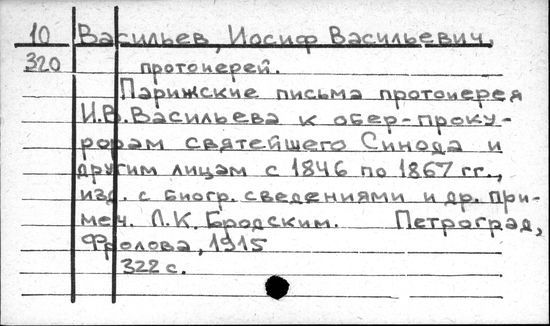 10 Васильев, Иосиф Васильевич,
320 протоиерей.
Парижские письма протоиерея
И.В. Васильева к обер-проку-
рорам святейшего Синода и
другим лицам с 1846 по 1867 гг.,
изд. с биогр. сведениями и др. при-
меч. Л.К. Бродским. Петроград,
Фролова, 1915
322 с.